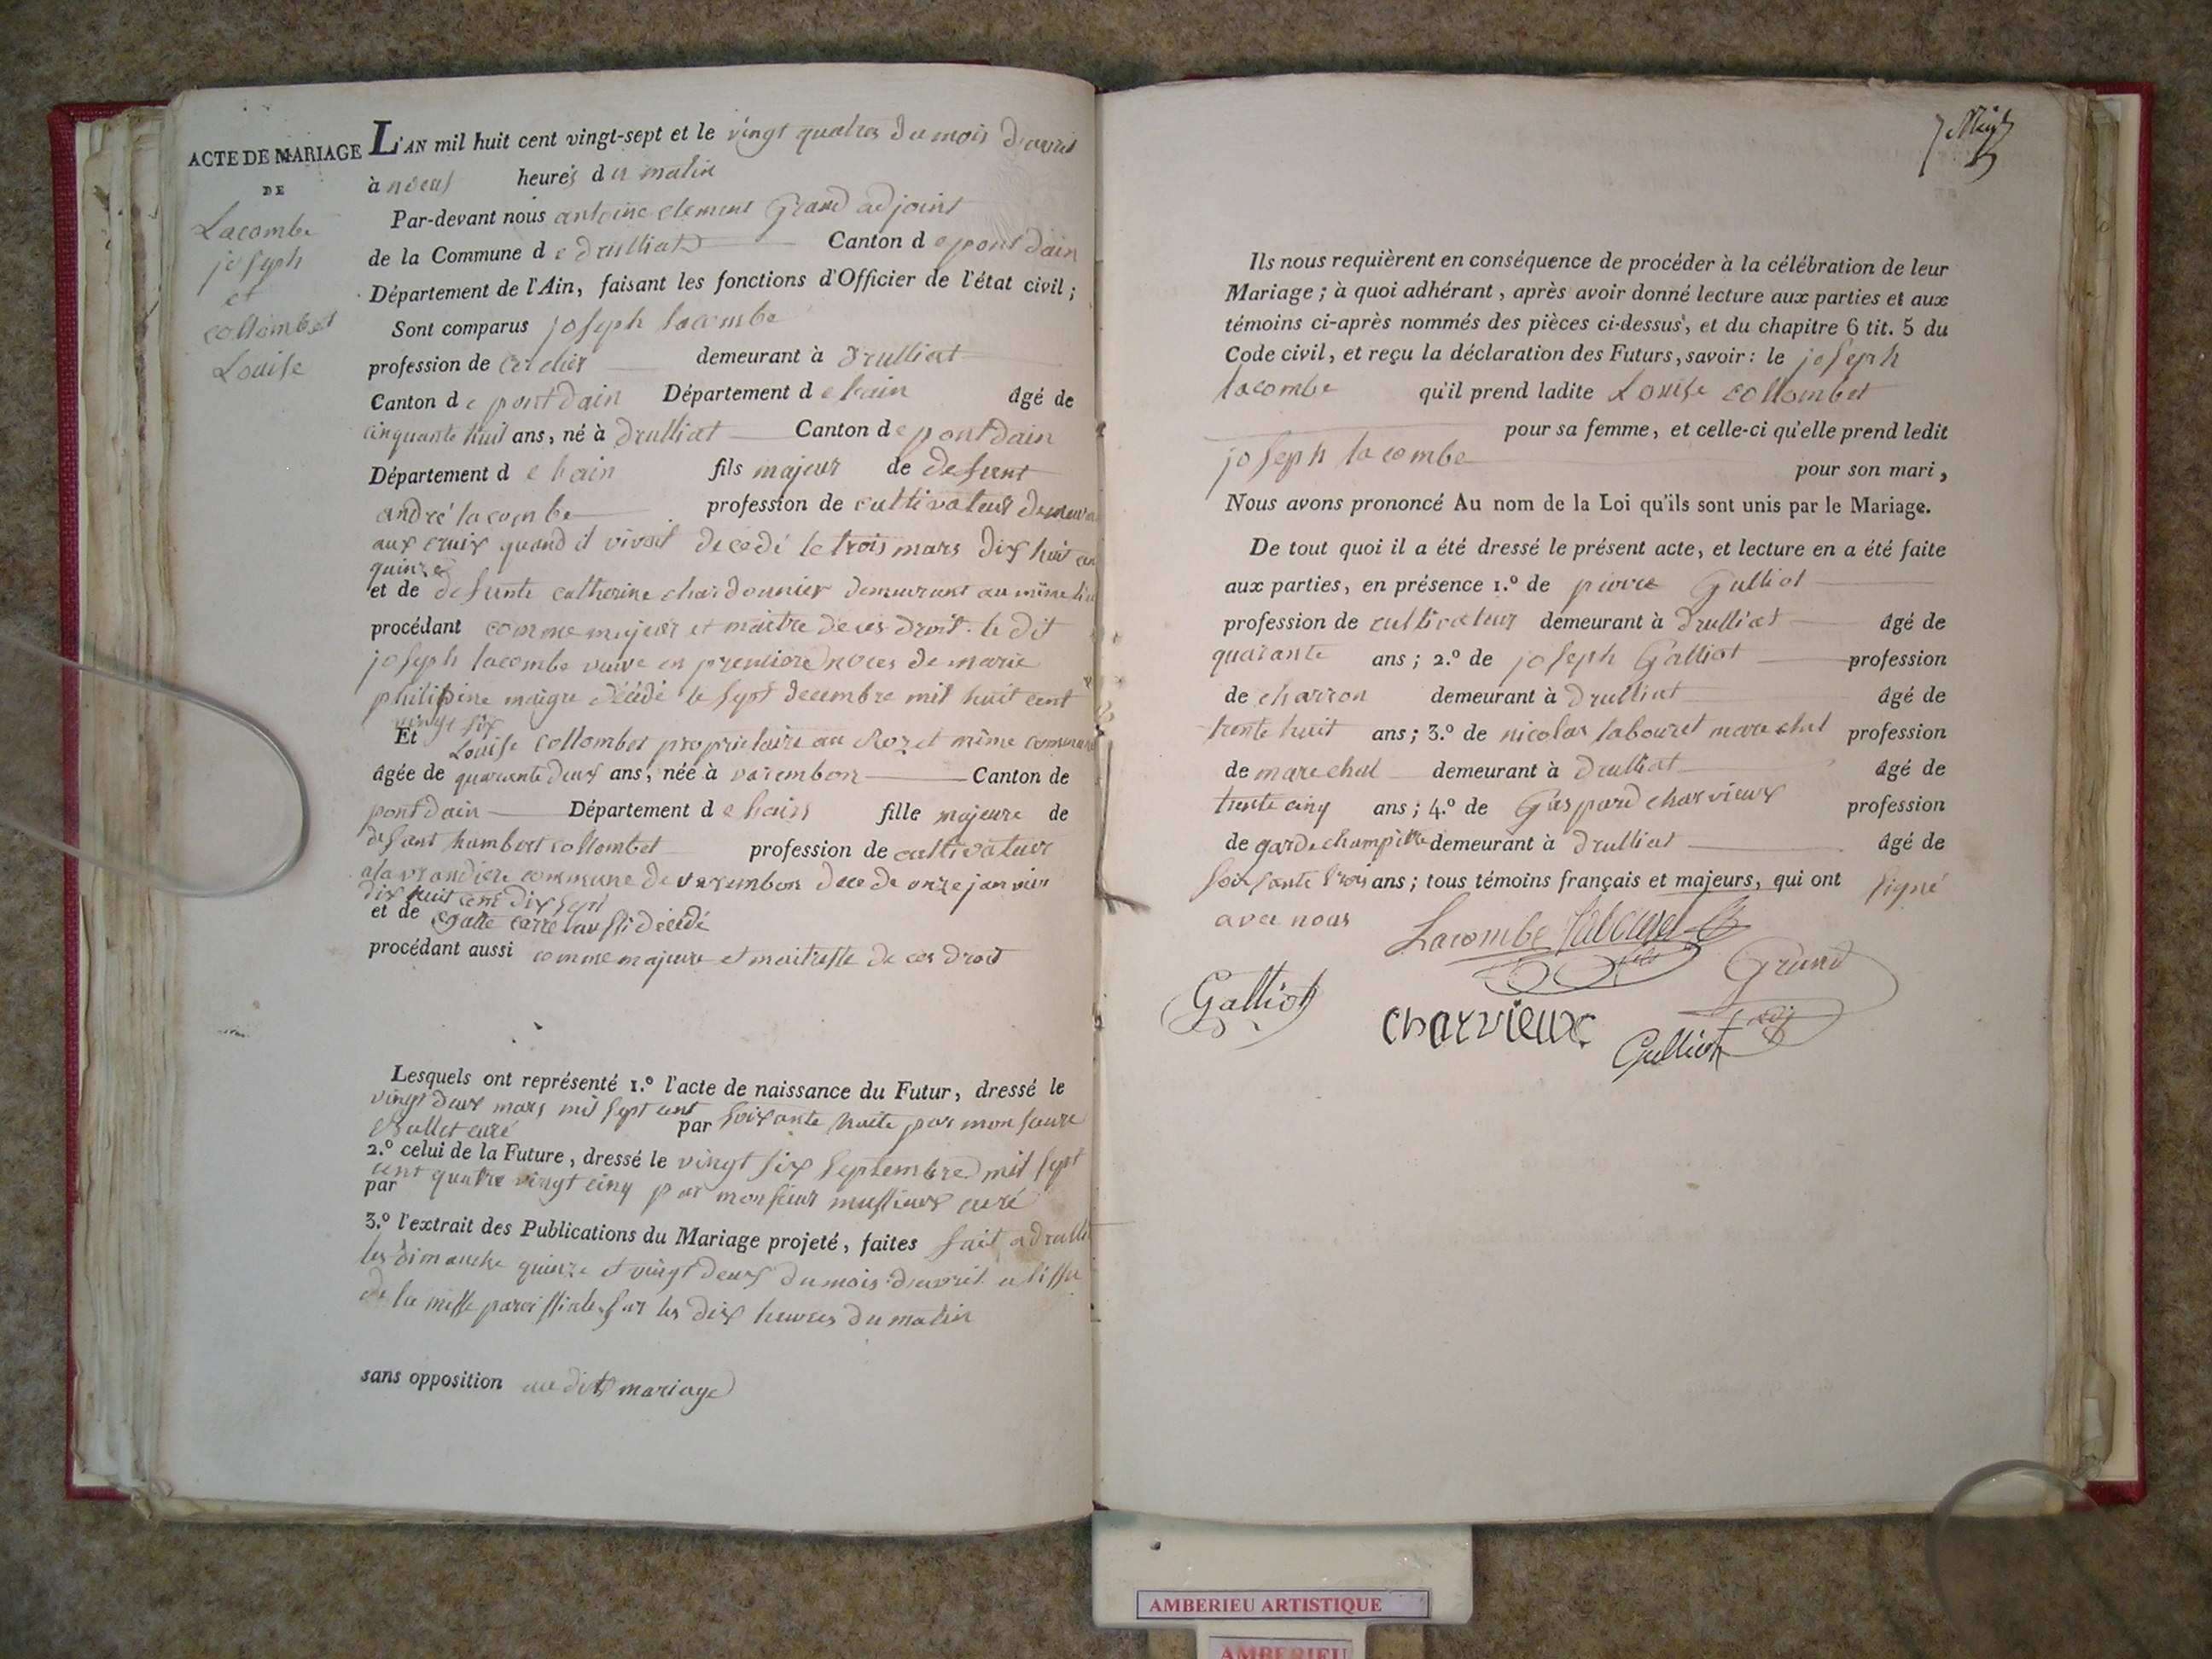 ACTE DE MARIAGE
DE
Lacombe
joseph
et
collombet
Louise
L'AN mil huit cent vingt-sept et le vingt quatres du mois d'avril
à neuf heures du matin
Par-devant nous antoine clement Grand adjoint
de la Commune de drulliat Canton de pont dain
Département de l'Ain, faisant les fonctions d'Officier de l'état civil ;
Sont comparus joseph lacombe
profession de demeurant à drulliat
Canton de pont dain Département de lain âgé de
cinquante huit ans, né à drulliat Canton de pont dain
Département de lain fils majeur de defunt
andré lacombe profession de cultivateur
aux quand il vivait decedé le trois mars dix huit cen
quinze
et de defunte catherine chardonnier demeurant au même lieu
procédant comme majeur et maitre de ces droit. le dit
joseph lacombe veuve en premiere noces de marie
philipine maigre décédé le sept decembre mil huit cent
vingt six
Et Louise collombet proprietaire au Rozet même commune
âgée de quarente deux ans, née à varembon Canton de
pont dain Département de lain fille majeure de
defunt humbert collombet profession de cultivateur
commune de varembon decede onze janvier
dix huit cent dix sept
et de carre aussi décédé
procédant aussi comme majeure et maitresse de ces droit
Lesquels ont représenté 1.° l'acte de naissance du Futur, dressé le
vingt deux mars mil sept cent
par soixante huite par
curé
2.° celui de la Future, dressé le vingt six septembre mil sept
cent quatre vingt cinq par monsieur curé
par
3.° l'extrait des Publications du Mariage projeté, faites fait a drulli
les dimanche quinze et vingt deux du mois d'avril a lissu
de la messe paroissiale sur les dix heures du matin
sans opposition au dit mariage
Ils nous requièrent en conséquence de procéder à la célébration de leur
Mariage ; à quoi adhérant, après avoir donné lecture aux parties et aux
témoins ci-après nommés des pièces ci-dessus, et du chapitre 6 tit. 5 du
Code civil, et reçu la déclaration des Futurs, savoir : le joseph
lacombe qu'il prend ladite Louise collombet
pour sa femme, et celle-ci qu'elle prend ledit
joseph lacombe pour son mari,
Nous avons prononcé Au nom de la Loi qu'ils sont unis par le Mariage.
De tout quoi il a été dressé le présent acte, et lecture en a été faite
aux parties, en présence 1.° de pierre Galliot
profession de cultivateur demeurant à drulliat âgé de
quarante ans ; 2.° de joseph Galliot profession
de charron demeurant à drulliat âgé de
trente huit ans ; 3.° de nicolas labouret marechal profession
de marechal demeurant à drulliat âgé de
trente cinq ans ; 4.° de Gaspard charvieux profession
de garde champètre demeurant à drulliat âgé de
soixante trois ans ; tous témoins français et majeurs, qui ont signé
avec nous
Lacombe Labouret
Grand
adj
Galliot
charvieux
Galliot
AMBERIEU ARTISTIQUE
AMBERIEU